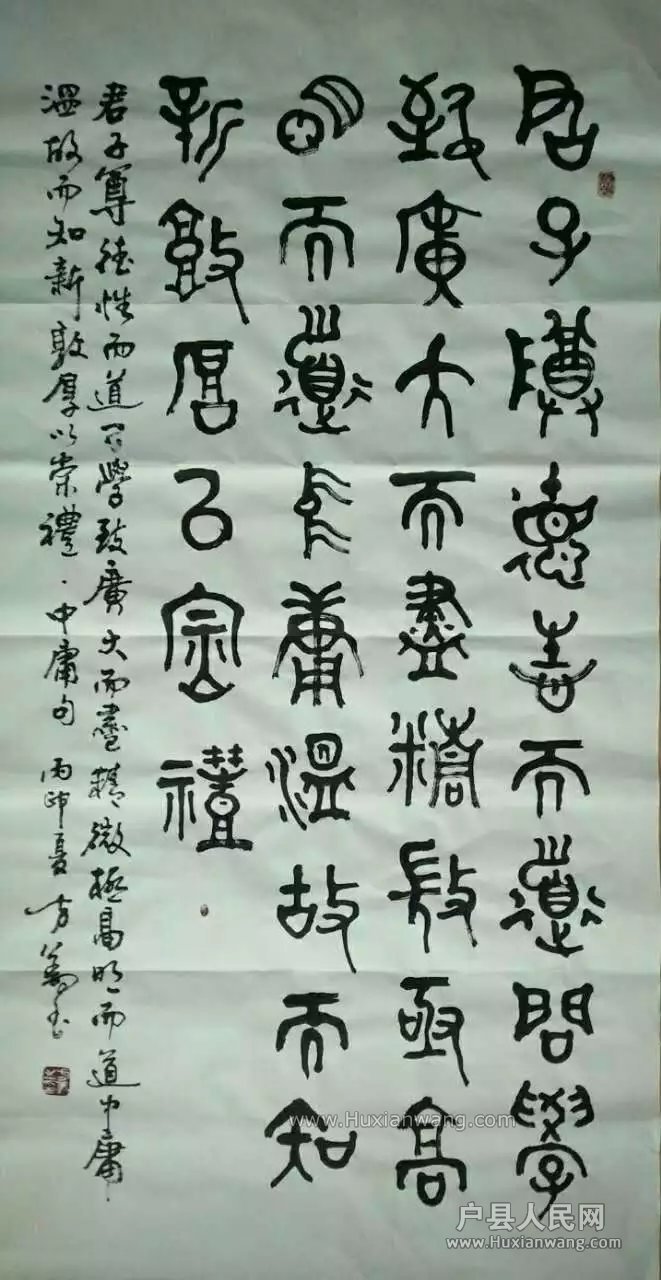 君子尊德性而道問學
致廣大而盡精微極高
明而道中庸溫故而知
新敦厚以崇禮
君子尊德性而道问學致廣大而盡精微極高明而道中庸
溫故而知新敦厚以崇禮·中庸句 丙申夏
www.Huxianwang.com
户县人民网
www.Huxianwang.com